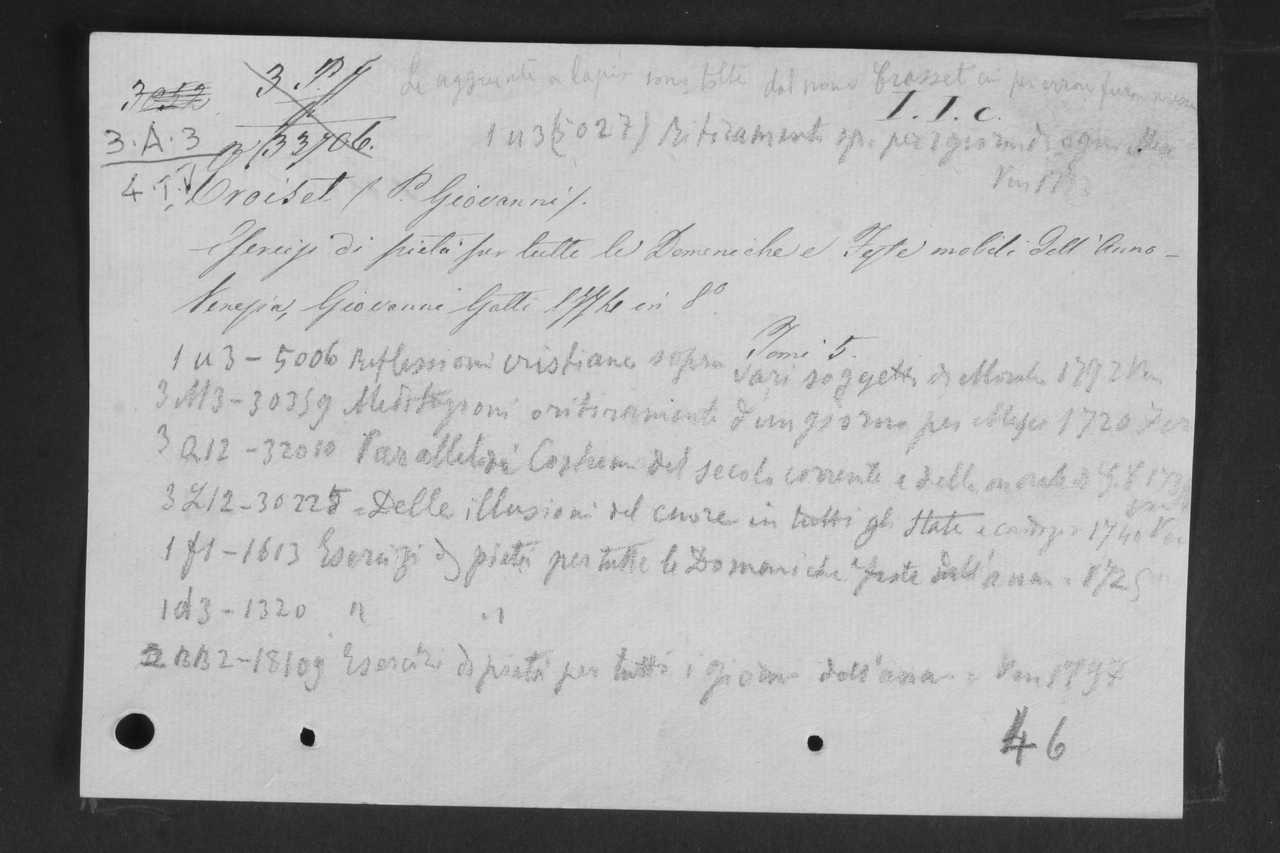 Le aggiunte a lapis sono tolte dal nome Crasset cui per errore furono
3 P
3.A.3
33706.
I. I. c.
1 u 3 (5027) Ritiramenti spi. per 1 giorno di ogni Mese
Ven 17
4.I.V
Croiset (P. Giovanni).
Esercizj di pietà per tutte le Domeniche e Feste mobili dell'Anno -
Venezia, Giovanni Gatti 1774 in 8º
Tomi 5.
1 u 3 - 5006 Riflessioni cristiane sopra vari soggetti di Morale 1792 Ven
3 M 3 - 30359 Meditazioni o ritiramenti d'un giorno per Mese 1720
3 Q 12 - 32010 Paralleli dei Costumi del secolo corrente e della morale di G. C.
3 Z 12 - 30225 - Delle illusioni del cuore in tutti gli state e condizi 1740 Ven
1 f 1 - 1613 Esercizi di pietà per tutte le Domeniche e feste dell'anno - 1725
1 d 3 - 1320 " "
2 BB 2 - 18109 Esercizi di pietà per tutti i giorni dell'anno - Ven 1797
46